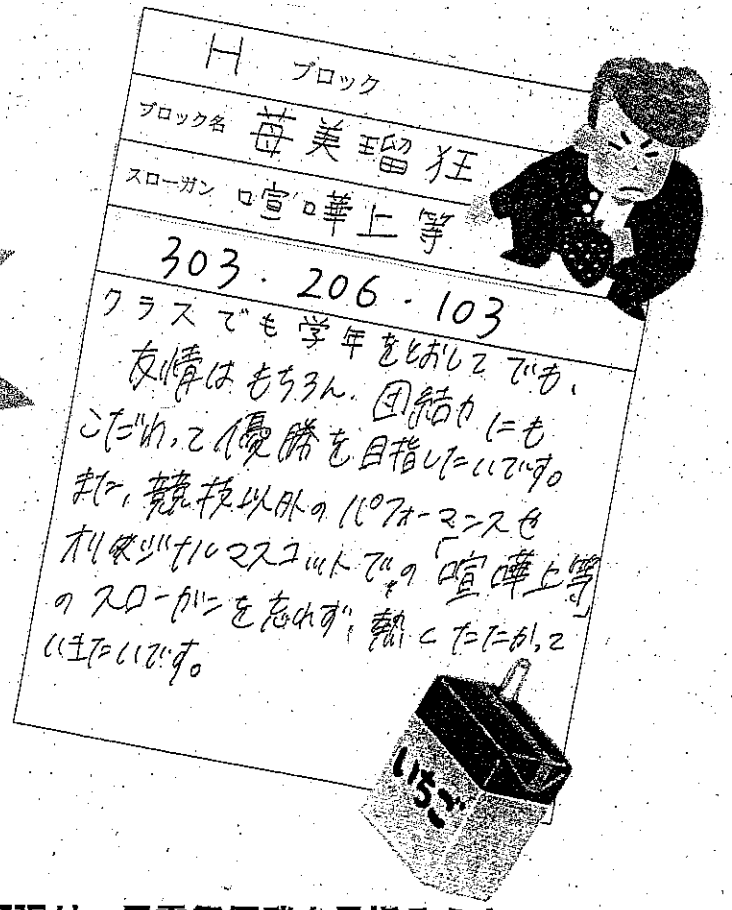 H ブロック
ブロック名 苺美瑠狂
スローガン 喧嘩上等
303・206・103
クラスでも学年をとおしてでも、
友情はもちろん、団結力にも
こだわって優勝を目指したいです。
また、競技以外のパフォーマンスや
オリジナルマスコットでの「喧嘩上等」
のスローガンを忘れず、熱くたたかって
いきたいです。
いちご